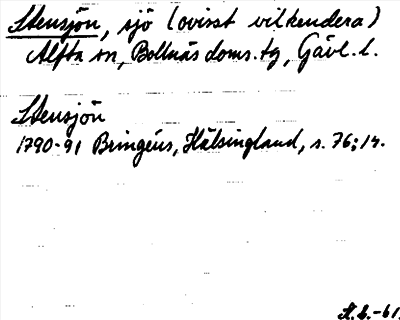 Stensjön, sjö (ovisst vilkendera)
Alfta sn, Bollnäs doms. tg, Gävl. l.
Stensjön
1790-91 Bringéus, Hälsingland, s. 76; 
-61.